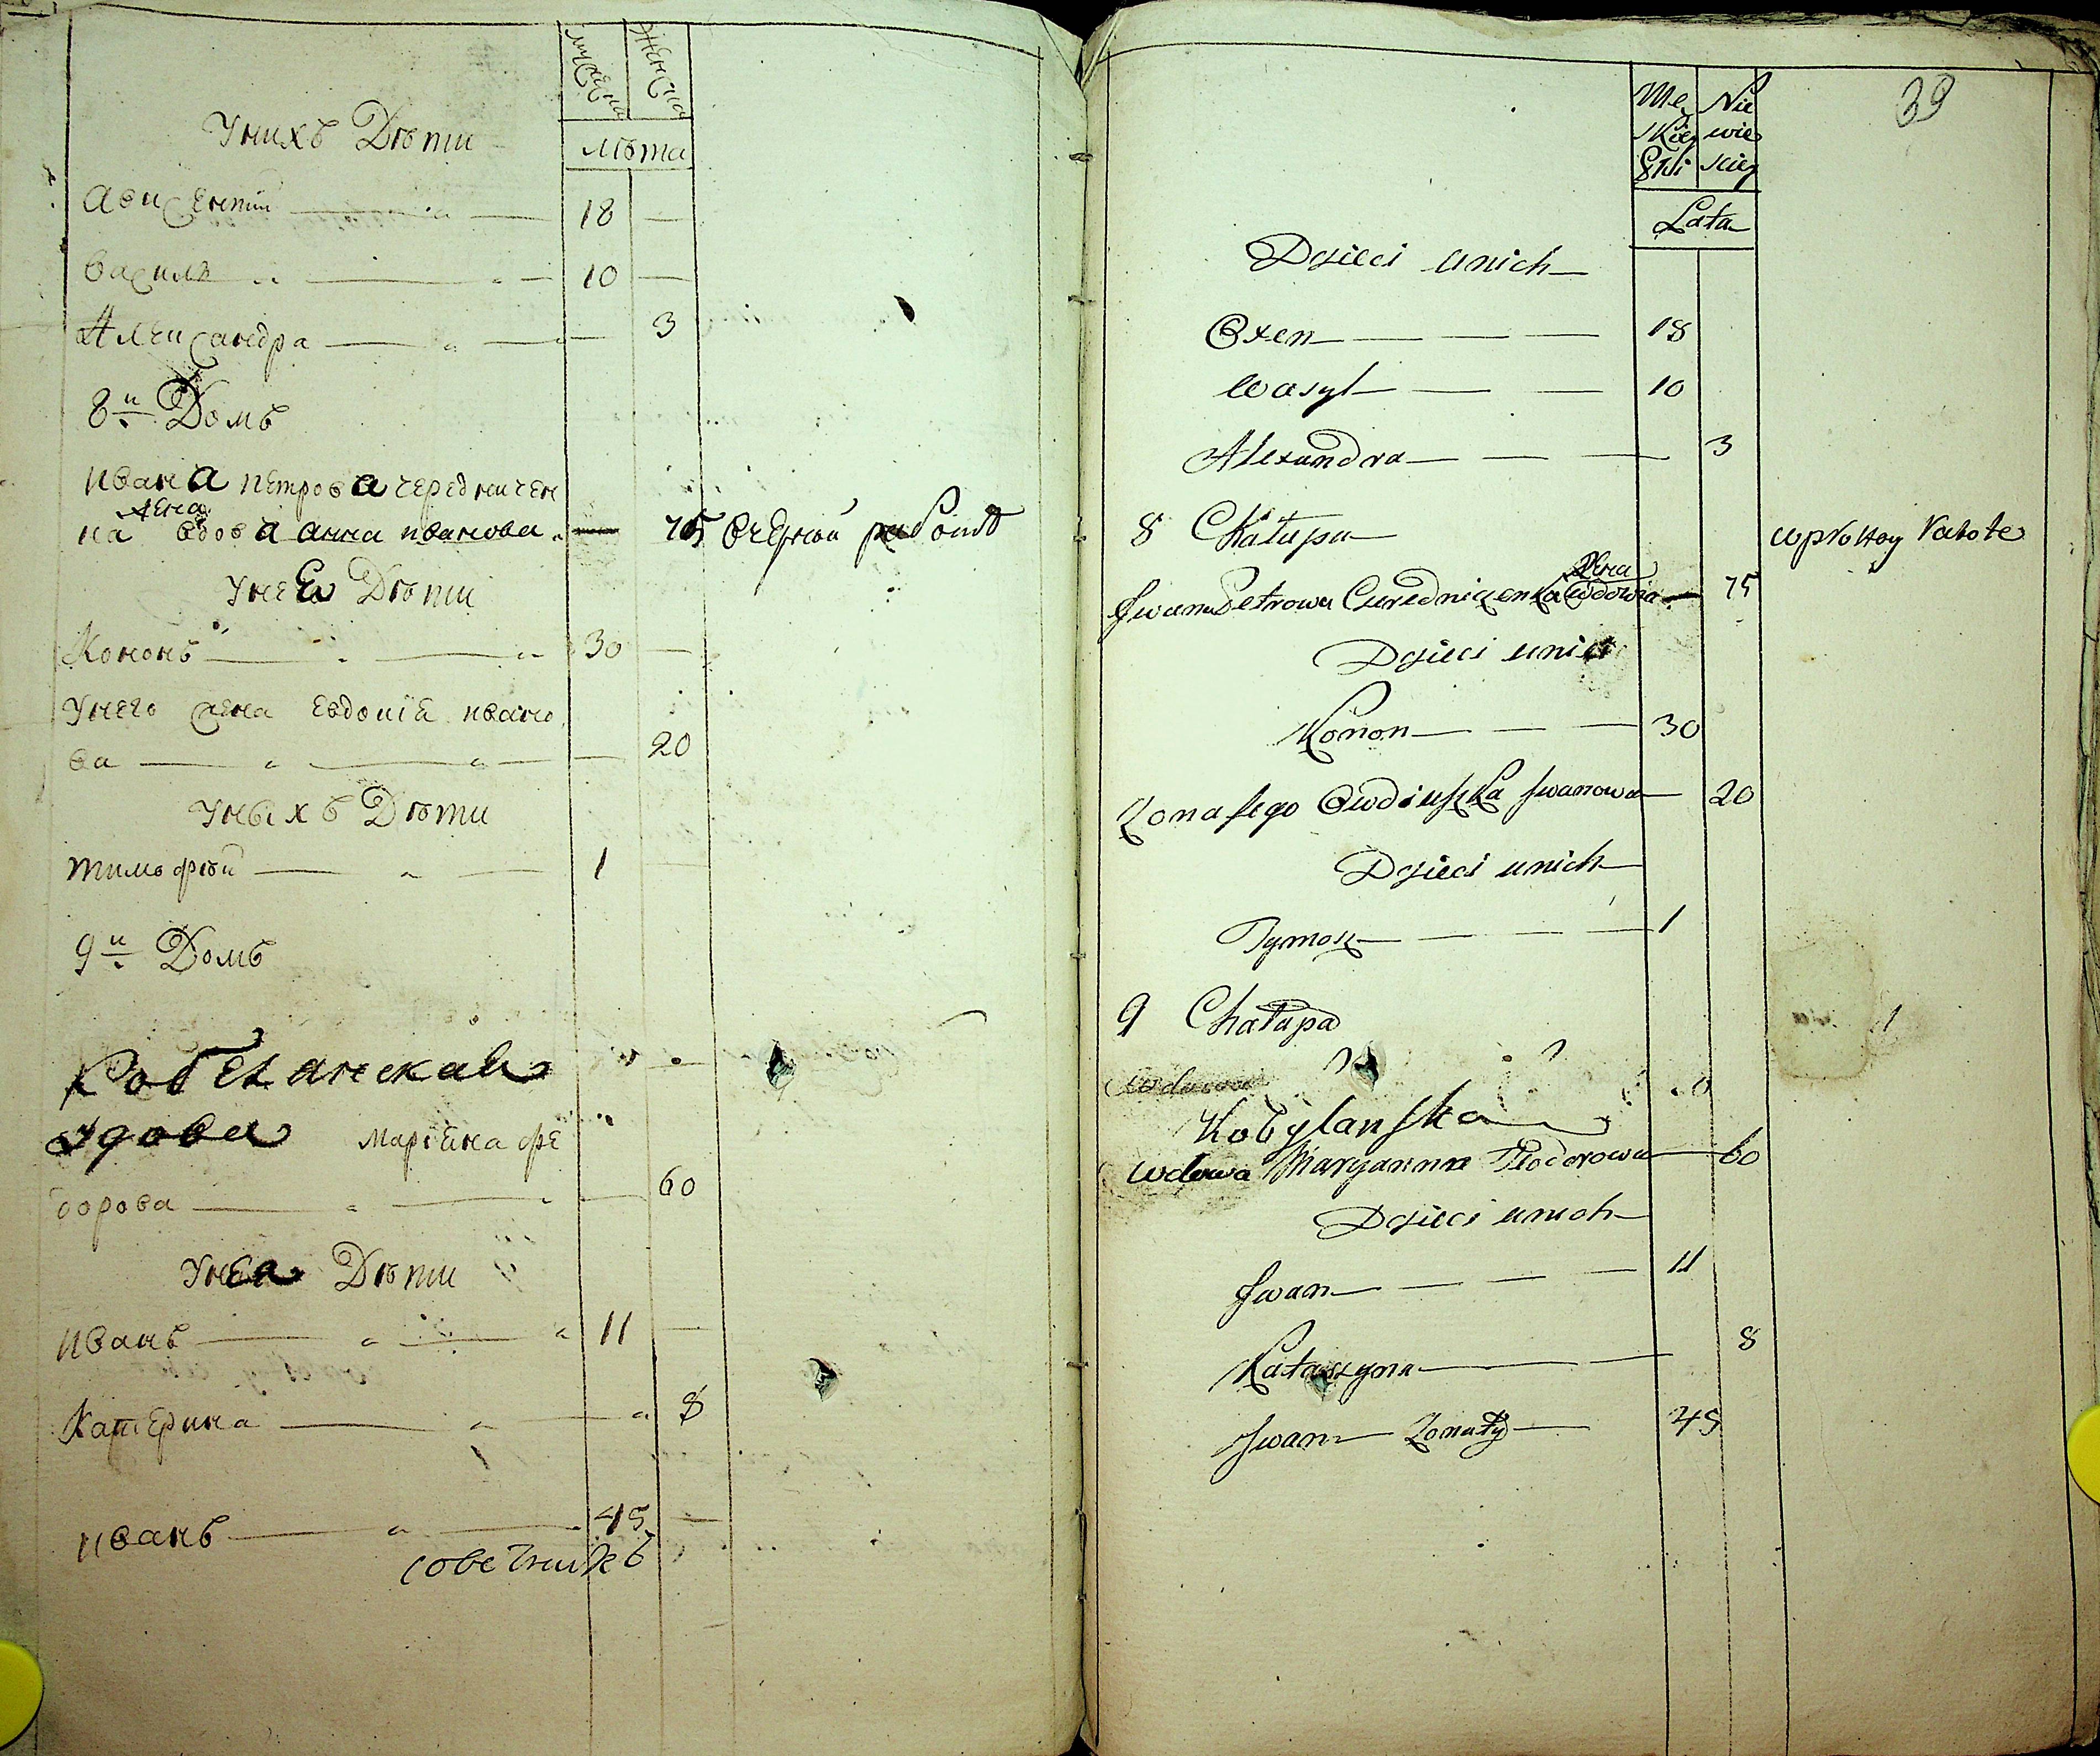 мужеска женска
лѣта
Унихъ Дѣти
Авксентий 18
василь 10
Александра 3
8й Домъ
ивана петрова чередничен
жена
ка вдова анна иванова 75 вчерной работѣ
Унея Дѣти
Кононъ 30
Унего жена Евдокіа ивано
ва 20
Уныхъ Дѣти
тимофѣй 1
9й Домъ
Кобелянская
удова мариена фе
дорова 60
Унея Дѣти
иванъ 11
Катерина 8
иванъ 45
39
Męz Nie
skiey wies
Płci kiey
Lata
Dzieci unich
Oxen 18
Wasyl 10
Alexandra 3
8 Chałupa wprostey Rabote
żena
Jwana Petrowa Czeredniczenka wdowa 75
Dzieci unich
Konon 30
Zona jego Owdiuszka Jwanowa 20
Dzieci unich
Tymosz 1
9 Chałupa
Kobylanska
wdowa Maryanna Teodorowa 60
Dzieci unich
Jwan 11
Katarzyna 8
Jwan Zonaty 45